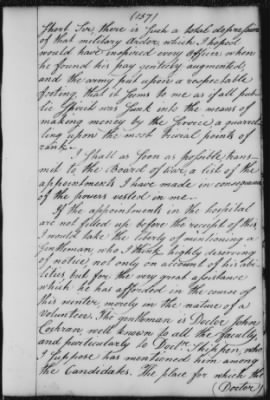 (157)
Short Sir, there is such a total depression
of that military Ardor, which I hoped
would have inspired every officer, when
he found his pay genteely augmented,
and the army put upon a respectable
footing, that it seems to me as if all pub-
lic Spirit was sunk into the means of
making money by the Service, or quarrel-
ling upon the most trivial points of
rank.
I shall as soon as possible, trans-
mit to the Board of War, a list of the
appointments I have made in consequence
of the powers vested in me.
If the appointments in the hospital
are not filled up before the receipt of this,
I would take the liberty of mentioning a
Gentleman, who I think highly deserving
of notice, not only on account of his abi-
lities, but for the very great assistance
which he has afforded in the course of
this winter, merely in the nature of a
Volunteer. This gentleman is Doctor John
Cochran, well known to all the faculty
and particularly to Doctr. Shippen, who
I suppose has mentioned him among
the Candidates. The place for which the
(Doctor)